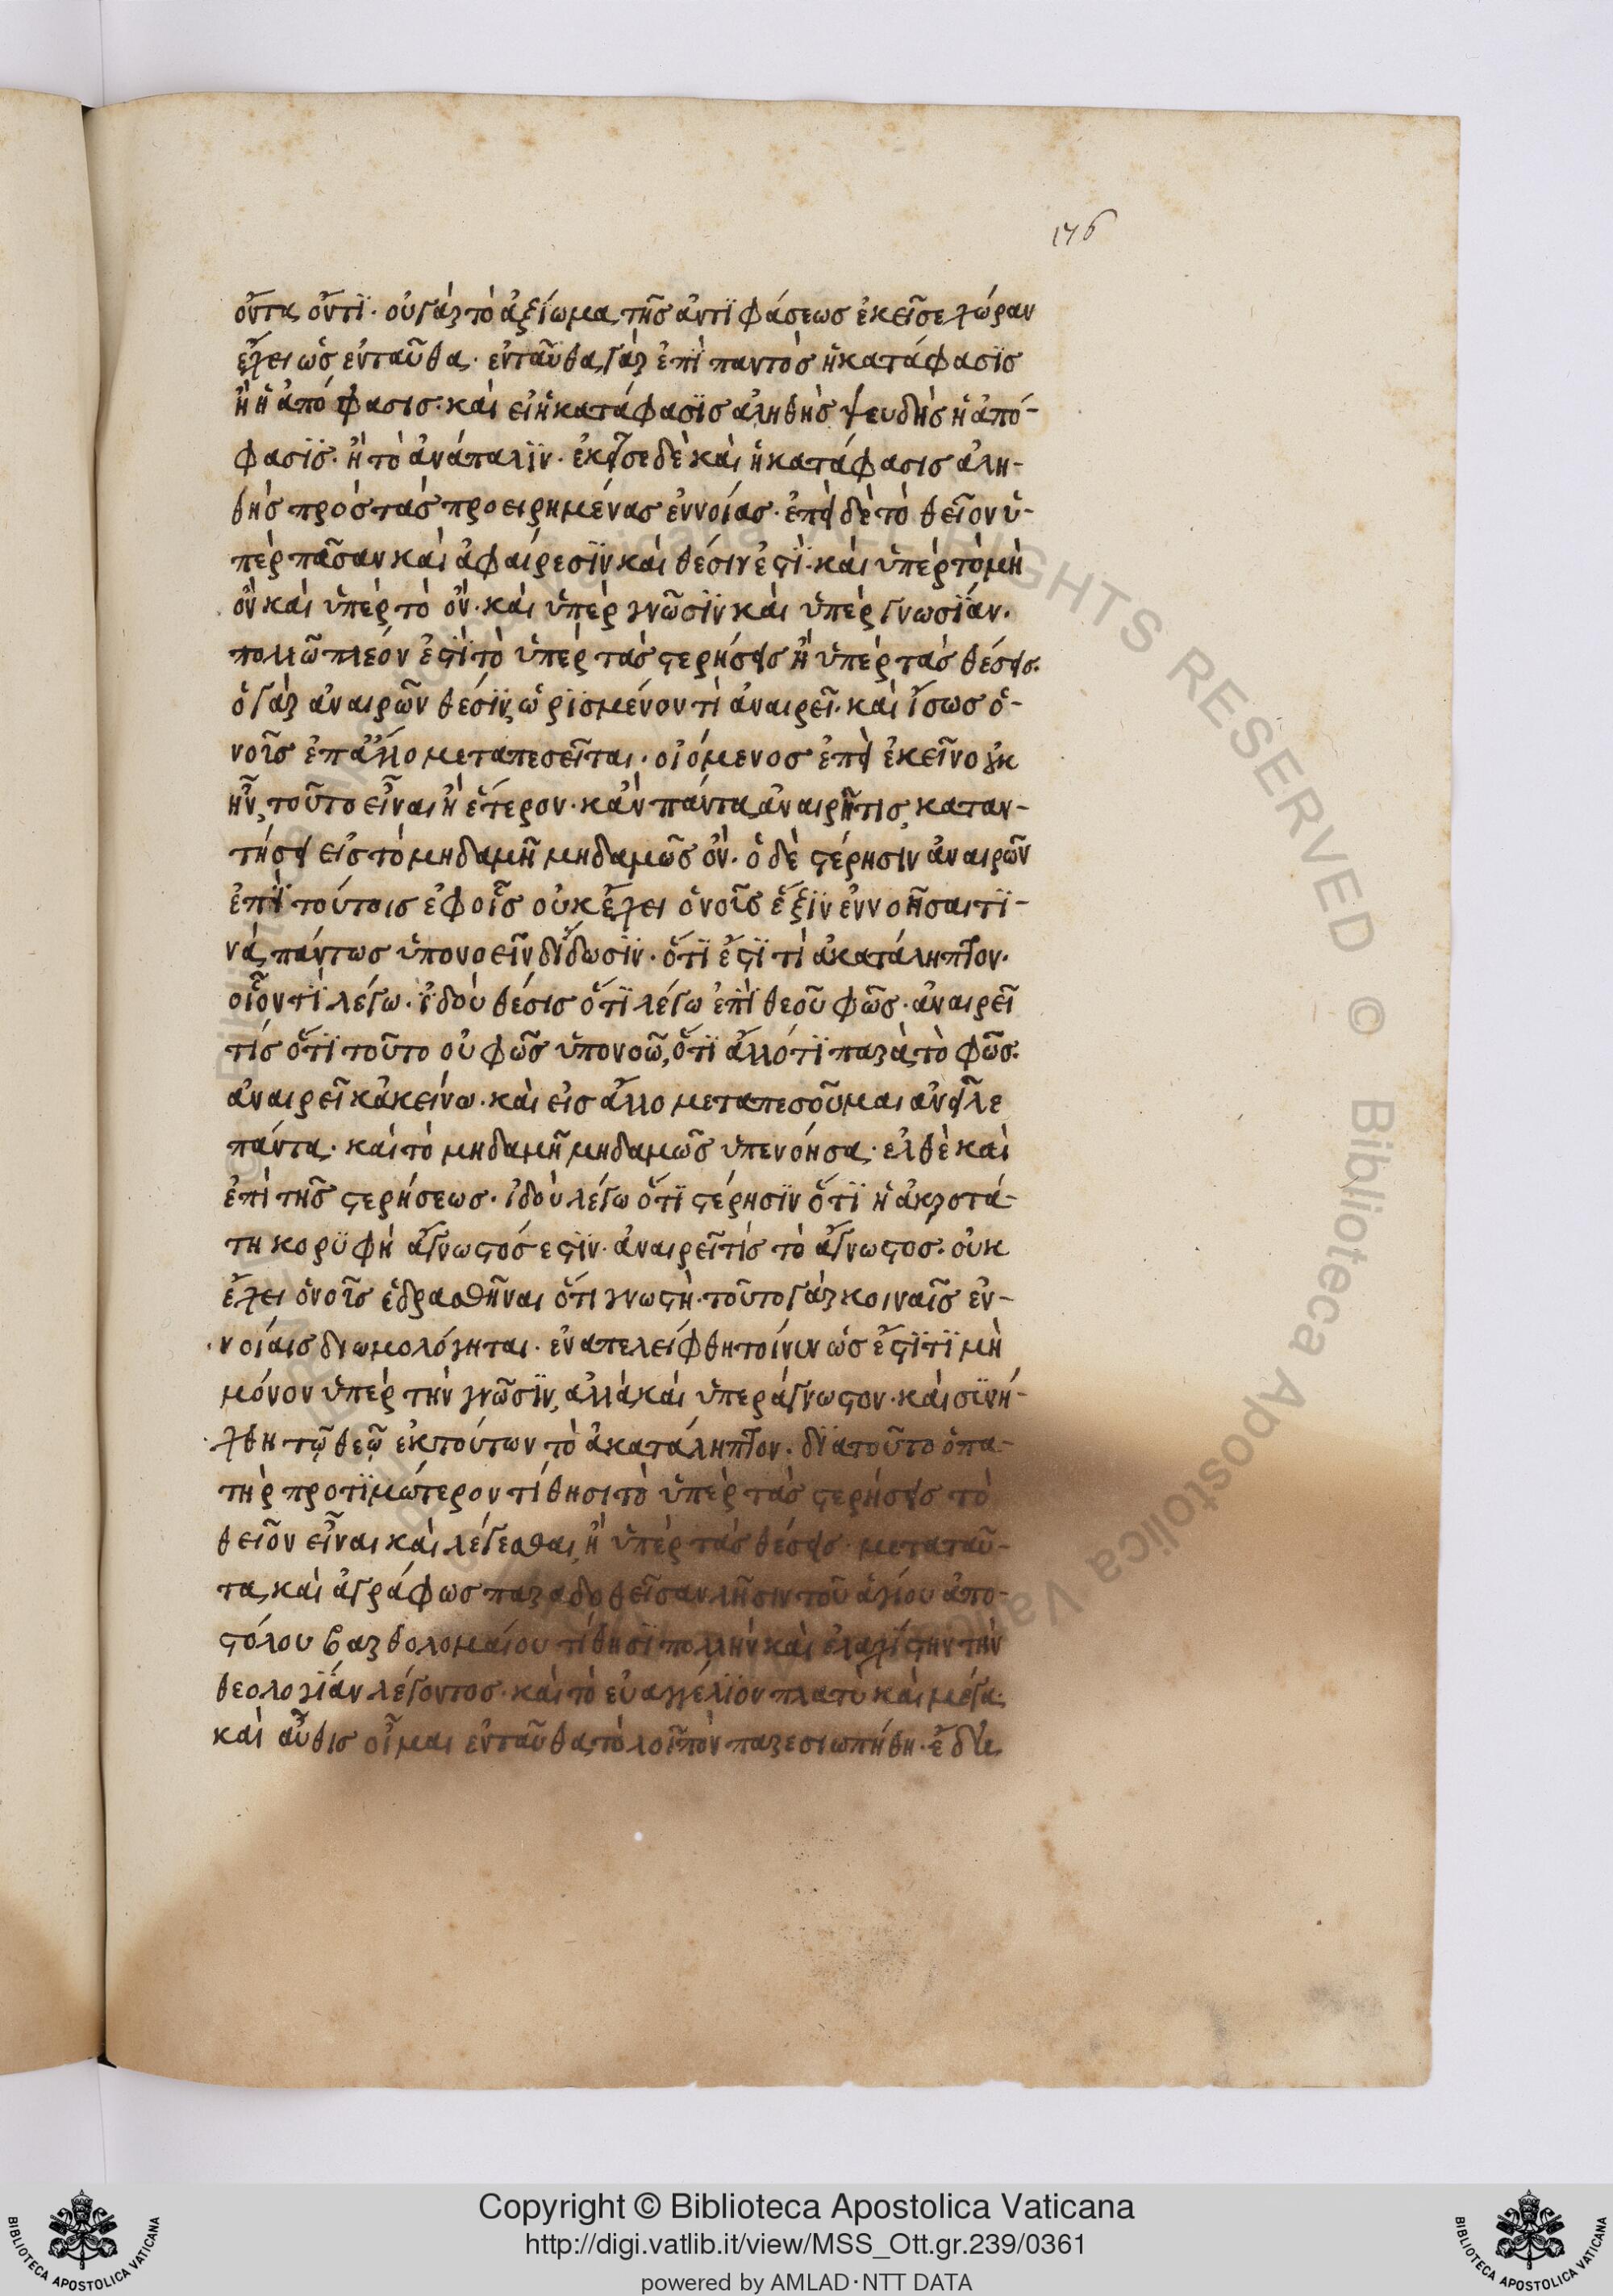 176
ὄντα ὄντϊ· οὐ γὰρ τὸ ἀξίωμα τῆς ἀντϊφάσεως ἐκεῖσε χώραν
ἔχει ὡς ἐνταῦθα· ἐνταῦθα γὰρ ἐπὶ παντὸς ἡ κατάφασϊς
ἢ ἡ ἀπόφασις· καὶ εἰ ἡ κατάφασϊς ἀληθὴς ψευδὴς ἡ ἀπό-
φασϊς· ἢ τὸ ἀνάπαλϊν· ἐκεῖσε δὲ καὶ ἡ κατάφασις ἀλη-
θὴς πρὸς τὰς προειρημένας ἐννοίας· ἐπεὶ δὲ τὸ θεῖον ὑ-
πὲρ πᾶσαν καὶ ἀφαίρεσϊν καὶ θέσιν ἐστϊ· καὶ ὑπὲρ τὸ μὴ
ὂν καὶ ὑπὲρ τὸ ὄν· καὶ ὑπὲρ γνῶσϊν καὶ ὑπὲρ γνωσΐαν·
πολλῶ πλέον ἐστϊ τὸ ὑπὲρ τὰς στερήσεις ἢ ὑπὲρ τὰς θέσεις·
ὁ γὰρ ἀναιρῶν θέσϊν, ὡρϊσμένον τὶ ἀναιρεῖ· καὶ ἴσως ὁ-
νοῦς ἐπ ἄλλο μεταπεσεῖται· οἰόμενος ἐπεὶ ἐκεῖνο οὐκ
ἦν, τοῦτο εἶναι ἢ ἕτερον· κἂν πάντα ἀναιρῆ τις, καταν-
τήσει εἰς τὸ μηδαμῆ μηδαμῶς ὄν· ὁ δὲ στέρησιν ἀναιρῶν
ἐπὶ τούτοις ἐφ οἷς οὐκ ἔχει ὁ νοῦς ἕξϊν ἐννοῆσαι τϊ-
νά, πάντως ὑπονοεῖν δίδωσϊν· ὅτϊ ἔστϊ τὶ ἀκατάληπτον·
οἷόν τϊ λέγω· ἰδοὺ θέσις ὅτϊ λέγω ἐπὶ θεοῦ φῶς· ἀναιρεῖ
τίς ὅτϊ τοῦτο οὐ φῶς ὑπονοῶ, ὅτϊ ἄλλό τϊ παρὰ τὸ φῶς·
ἀναιρεῖ κἀκείνω· καὶ εἰς ἄλλο μεταπεσοῦμαι ἀνεῖλε
πάντα· καὶ τὸ μηδαμῆ μηδαμῶς ὑπενόησα· ἐλθὲ καὶ
ἐπὶ τῆς στερήσεως· ἰδοὺ λέγω ὅτϊ στέρησϊν ὅτϊ ἡ ἀκροτά-
τη κορϋφὴ ἄγνωστός εστϊν· ἀναιρεῖ τίς τὸ ἄγνωστος· οὐκ
ἔχει ὁ νοῦς ἑδρασθῆναι ὅτι γνωστὴ· τοῦτο γὰρ κοιναῖς ἐν-
νοίαις διωμολόγηται· ἐναπελείφθη τοίνυν ὡς ἔστϊ τϊ μὴ
μόνον ὑπὲρ τὴν γνῶσϊν, ἀλλὰ καὶ ὑπεράγνωστον· καὶ σϊνή-
χθη τῷ θεῷ ἐκ τούτων τὸ ἀκατάληπτον· διατοῦτο ὁ πα-
τὴρ προτϊμώτερον τίθησι τὸ ὑπὲρ τὰς στερήσεις τὸ
θεῖον εἶναι καὶ λέγεσθαι, ἢ ὑπὲρ τὰς θέσεις· μετα ταῦ-
τα, καὶ ἀγράφως παραδοθεῖσαν λῆσιν τοῦ ἁγίου ἀπο-
στόλου βαρθολομαίου τίθησϊ πολλὴν καὶ ἐλαχίστην τὴν
θεολογίαν λέγοντος· καὶ τὸ εὐαγγέλϊον πλατὺ καὶ μέγα·
καὶ αὖθις οἶμαι ἐνταῦθα τὸ λοιπὸν παρεσιωπήθη·
Copyright © Biblioteca Apostolica Vaticana
http://digi.vatlib.it/view/MSS_Ott.gr.239/0361
powered by AMLAD·NTT DATA